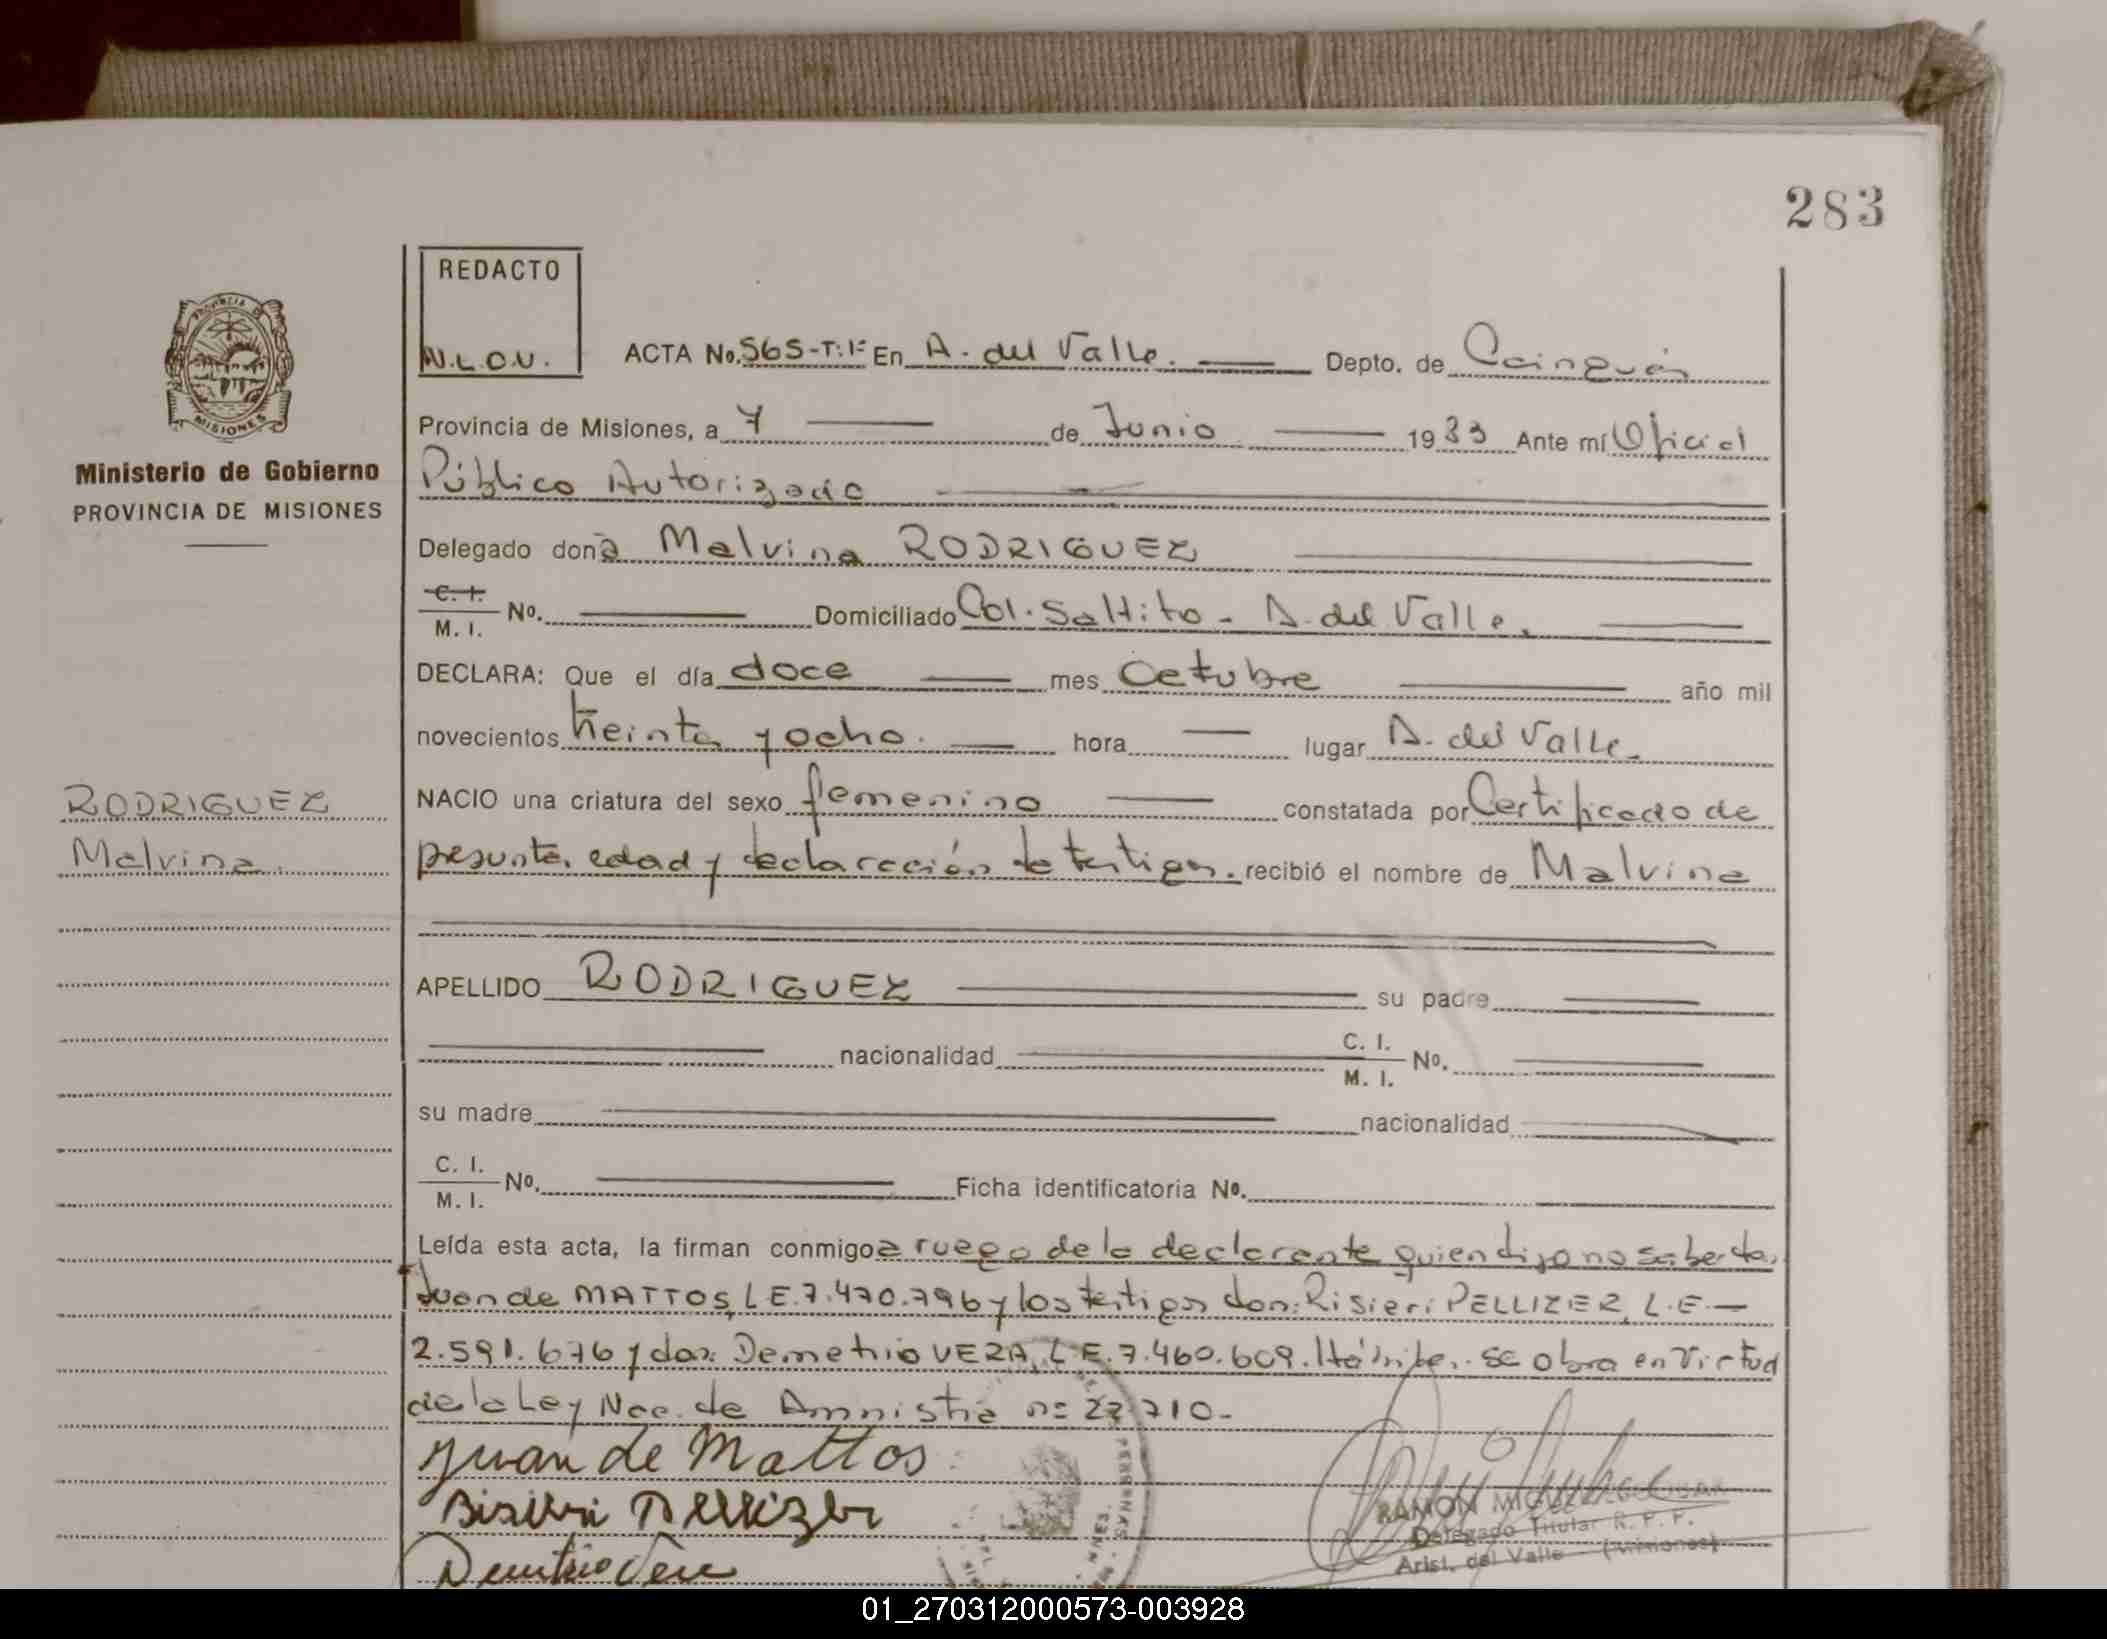 283
REDACTO
N.L.O.V.
ACTA No. 565-T:1º En A. del Valle. Depto. de Cainguás
PROVINCIA DE
MISIONES
Provincia de Misiones, a 7 de Junio 1983 Ante mí Oficial
Ministerio de Gobierno
PROVINCIA DE MISIONES
Público Autorizado
Delegado don a Malvina RODRIGUEZ
C. I.
M. I. No. Domiciliado Col. Saltito - A. del Valle.
DECLARA: Que el día doce mes Octubre año mil
novecientos treinta y ocho. hora lugar A. del Valle.
RODRIGUEZ
Malvina.
NACIO una criatura del sexo femenino constatada por Certificado de
presunta edad y declaración de testigos. recibió el nombre de Malvina
APELLIDO RODRIGUEZ su padre
nacionalidad C. I. M. I. No.
su madre nacionalidad
C. I. M. I. No. Ficha identificatoria No.
Leída esta acta, la firman conmigo a ruego de la declarante quien dijo no saber
Juan de MATTOS, L E. 7.470.796 y los testigos don: Risieri PELLIZER, L.E.-
2.591.676 y don: Demetrio VERA, L E. 7.460.609. se obra en virtud
de la Ley Nac. de Amnistía nº 22.710-
Juan de Mattos
Risieri Pellizer
Demetrio Vera
RAMON MIGUEL
Delegado Titular R. P. P.
Arist. del Valle (Misiones)
01_270312000573-003928